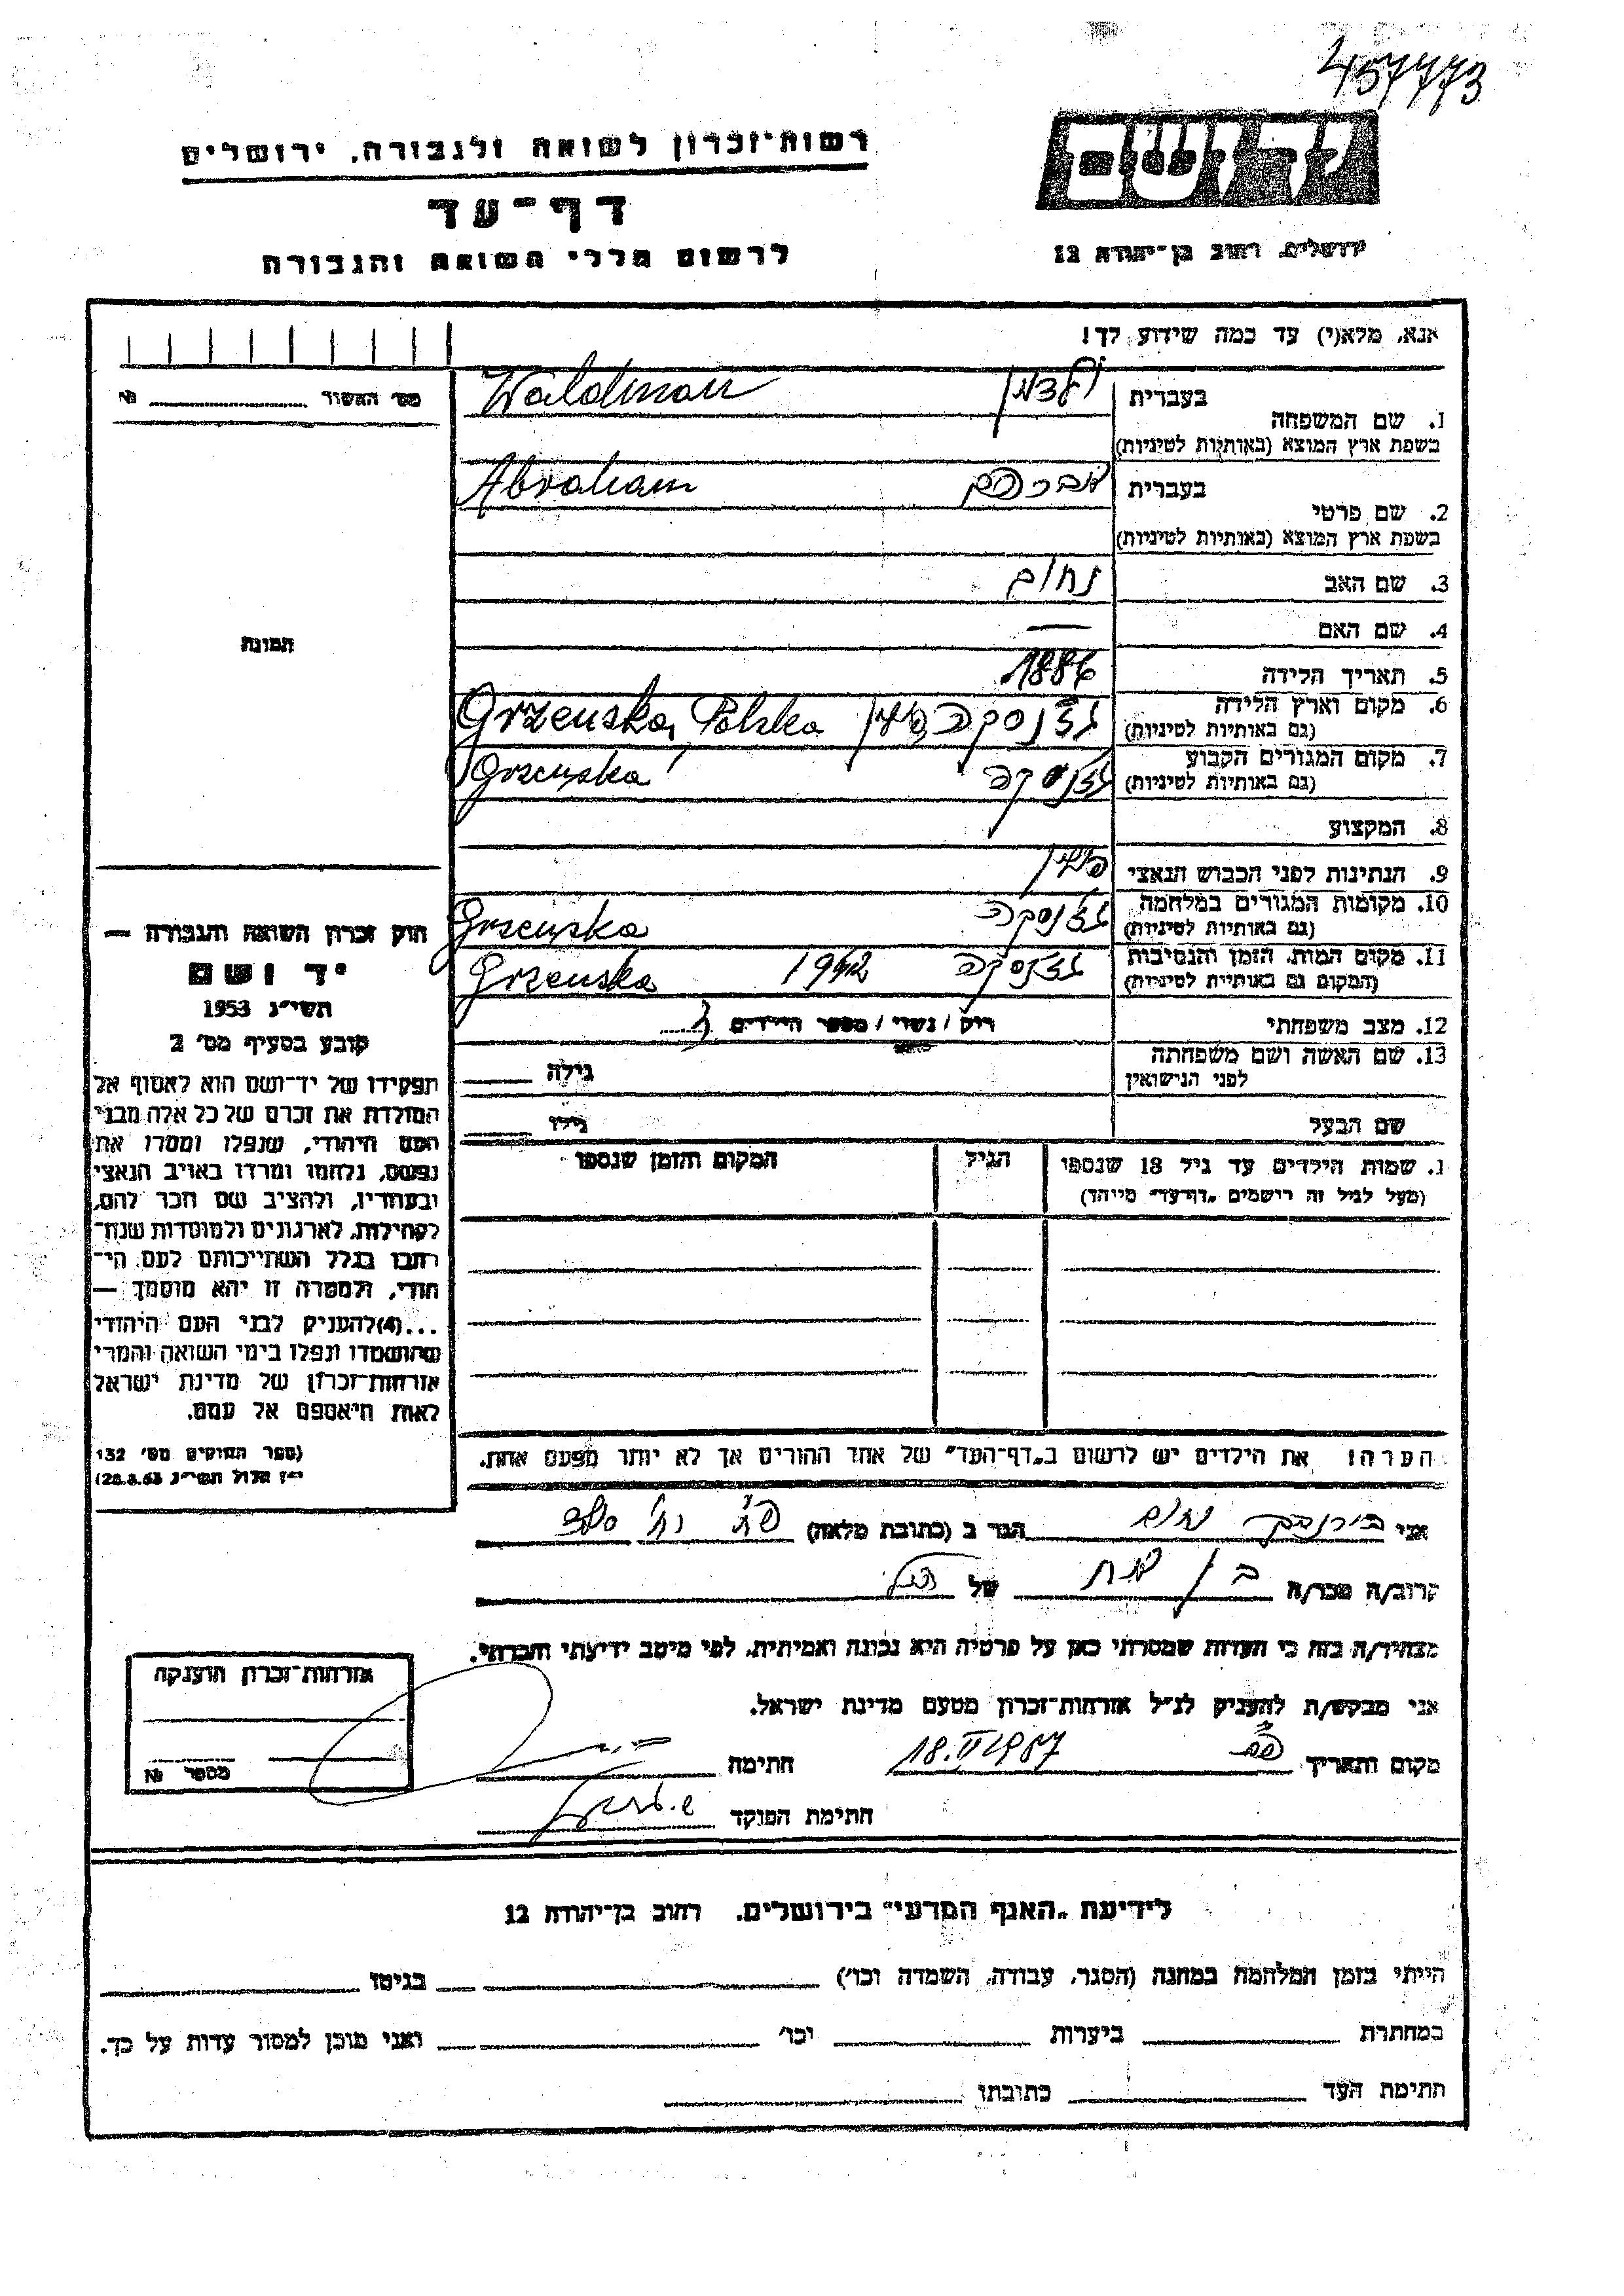 457773
רשות־זכרון לשואה ולגבורה, ירושלים
יד ושם
דף־עד
ירושלים, רחוב בן־יהודה 12
לרשום חללי השואה והגבורה
אנא, מלא(י) עד כמה שידוע לך!
מס' האשור № 
1. שם המשפחה
בעברית ולדמן Waldman
בשפת ארץ המוצא (באותיות לטיניות)
2. שם פרטי
בעברית אברהם Abraham
בשפת ארץ המוצא (באותיות לטיניות)
3. שם האב נחום
4. שם האם —
תמונה
5. תאריך הלידה 1886
6. מקום וארץ הלידה גז'נסקה פולין Grzenska, Polska
(גם באותיות לטיניות)
7. מקום המגורים הקבוע גז'נסקה Grzenska
(גם באותיות לטיניות)
8. המקצוע
9. הנתינות לפני הכבוש הנאצי פולין
10. מקומות המגורים במלחמה גז'נסקה Grzenska
(גם באותיות לטיניות)
11. מקום המות, הזמן והנסיבות גז'נסקה 1942 Grzenska
(המקום גם באותיות לטיניות)
12. מצב משפחתי רוק / נשוי / מספר הילדים
13. שם האשה ושם משפחתה
לפני הנישואין גילה
שם הבעל גילו
1. שמות הילדים עד גיל 18 שנספו הגיל המקום והזמן שנספו
(מעל לגיל זה רושמים "דף־עד" מיוחד)
חוק זכרון השואה והגבורה —
יד ושם
תשי"ג 1953
קובע בסעיף מס' 2
תפקידו של יד־ושם הוא לאסוף אל
המולדת את זכרם של כל אלה מבני
העם היהודי, שנפלו ומסרו את
נפשם, נלחמו ומרדו באויב הנאצי
ובעוזריו, ולהציב שם וזכר להם,
לקהילות, לארגונים ולמוסדות שנח־
רבו בגלל השתייכותם לעם הי־
הודי, ולמטרה זו יהא מוסמך —
...(4) להעניק לבני העם היהודי
שהושמדו ונפלו בימי השואה והמרי
אזרחות־זכרון של מדינת ישראל
לאות היאספם אל עמם.
(ספר החוקים מס' 132
י"ז אלול תשי"ג 28.8.53)
הערה! את הילדים יש לרשום ב"דף־העד" של אחד ההורים אך לא יותר מפעם אחת.
אני בירנבך נחום הגר ב (כתובת מלאה)
קרוב/ה מכר/ה בן דוד של הנ"ל
מצהיר/ה בזה כי העדות שמסרתי כאן על פרטיה היא נכונה ואמיתית, לפי מיטב ידיעתי והכרתי.
אני מבקש/ת להעניק לנ"ל אזרחות־זכרון מטעם מדינת ישראל.
מקום ותאריך 18.II 1957 חתימה
חתימת הפוקד
אזרחות־זכרון הוענקה
מספר №
לידיעת "האגף המדעי" בירושלים, רחוב בן־יהודה 12
הייתי בזמן המלחמה במחנה (הסגר, עבודה, השמדה וכו') בגיטו
במחתרת ביערות וכו' ואני מוכן למסור עדות על כך.
חתימת העד כתובתו